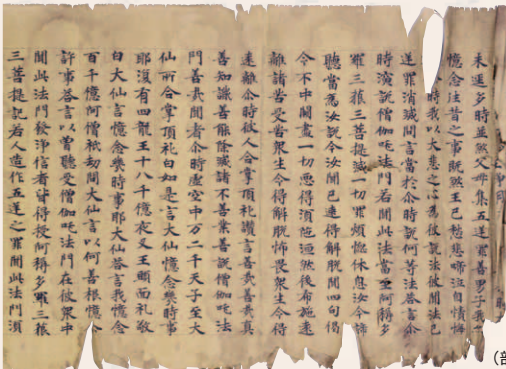 未逕多時並煞父母集五逆罪善男子我
憶念往昔之事既煞王已愁悲啼泣自責悔
時我以大悲之心為彼說法彼聞法已
逆罪消滅問言當於尒時說何等法荅言尒
時演說僧伽吒法門若聞此法當至阿耨多
羅三藐三菩提滅一切罪煩惱休息汝今諦
聽當為汝說令汝聞已速得解脫聞四句偈
令不中闕盡一切惡得須陁洹然後布施悉
離諸苦受苦衆生令得解脫怖畏衆生令得
遠離尒時彼人合掌頂礼讚言善哉善哉真
善知識善能除滅諸不善業善說僧伽吒法
門善哉聞者尒時虛空中万二千天子至大
仙所合掌頂礼白如是言大仙憶念幾時事
耶復有四龍王十八千億夜叉王頭面礼敬
白大仙言憶念幾時事耶大仙荅言我憶念
百千億阿僧祇劫問大仙言以何善根憶念
許事荅言以曽聽受僧伽吒法門在彼衆中
聞此法門發淨信者皆得授阿耨多羅三藐
三菩提記若人造作五逆之罪聞此法門須
（部